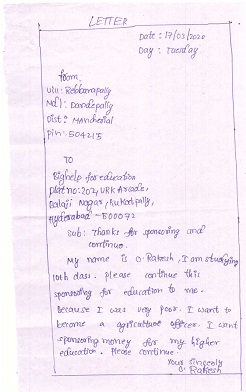 LETTER
Date : 17/03/2020
Day : Tuesday
From,
Vill: Rebbanapally
Mdl: Dandepally
Dist: Mancherial
pin: 504215
TO
Bighelp for education
plat no:202, VRK Arcade,
Balaji Nagar, Kukatpally,
Hyderabad - 500072
Sub: Thanks for sponsoring and
continue.
My name is O. Rakesh, I am studying
10th class. please continue this
sponsoring for education to me.
Because I was very poor. I want to
become a agriculture officer. I want
sponsoring money for my higher
education. Please continue.
Your sincerly
O. Rakesh